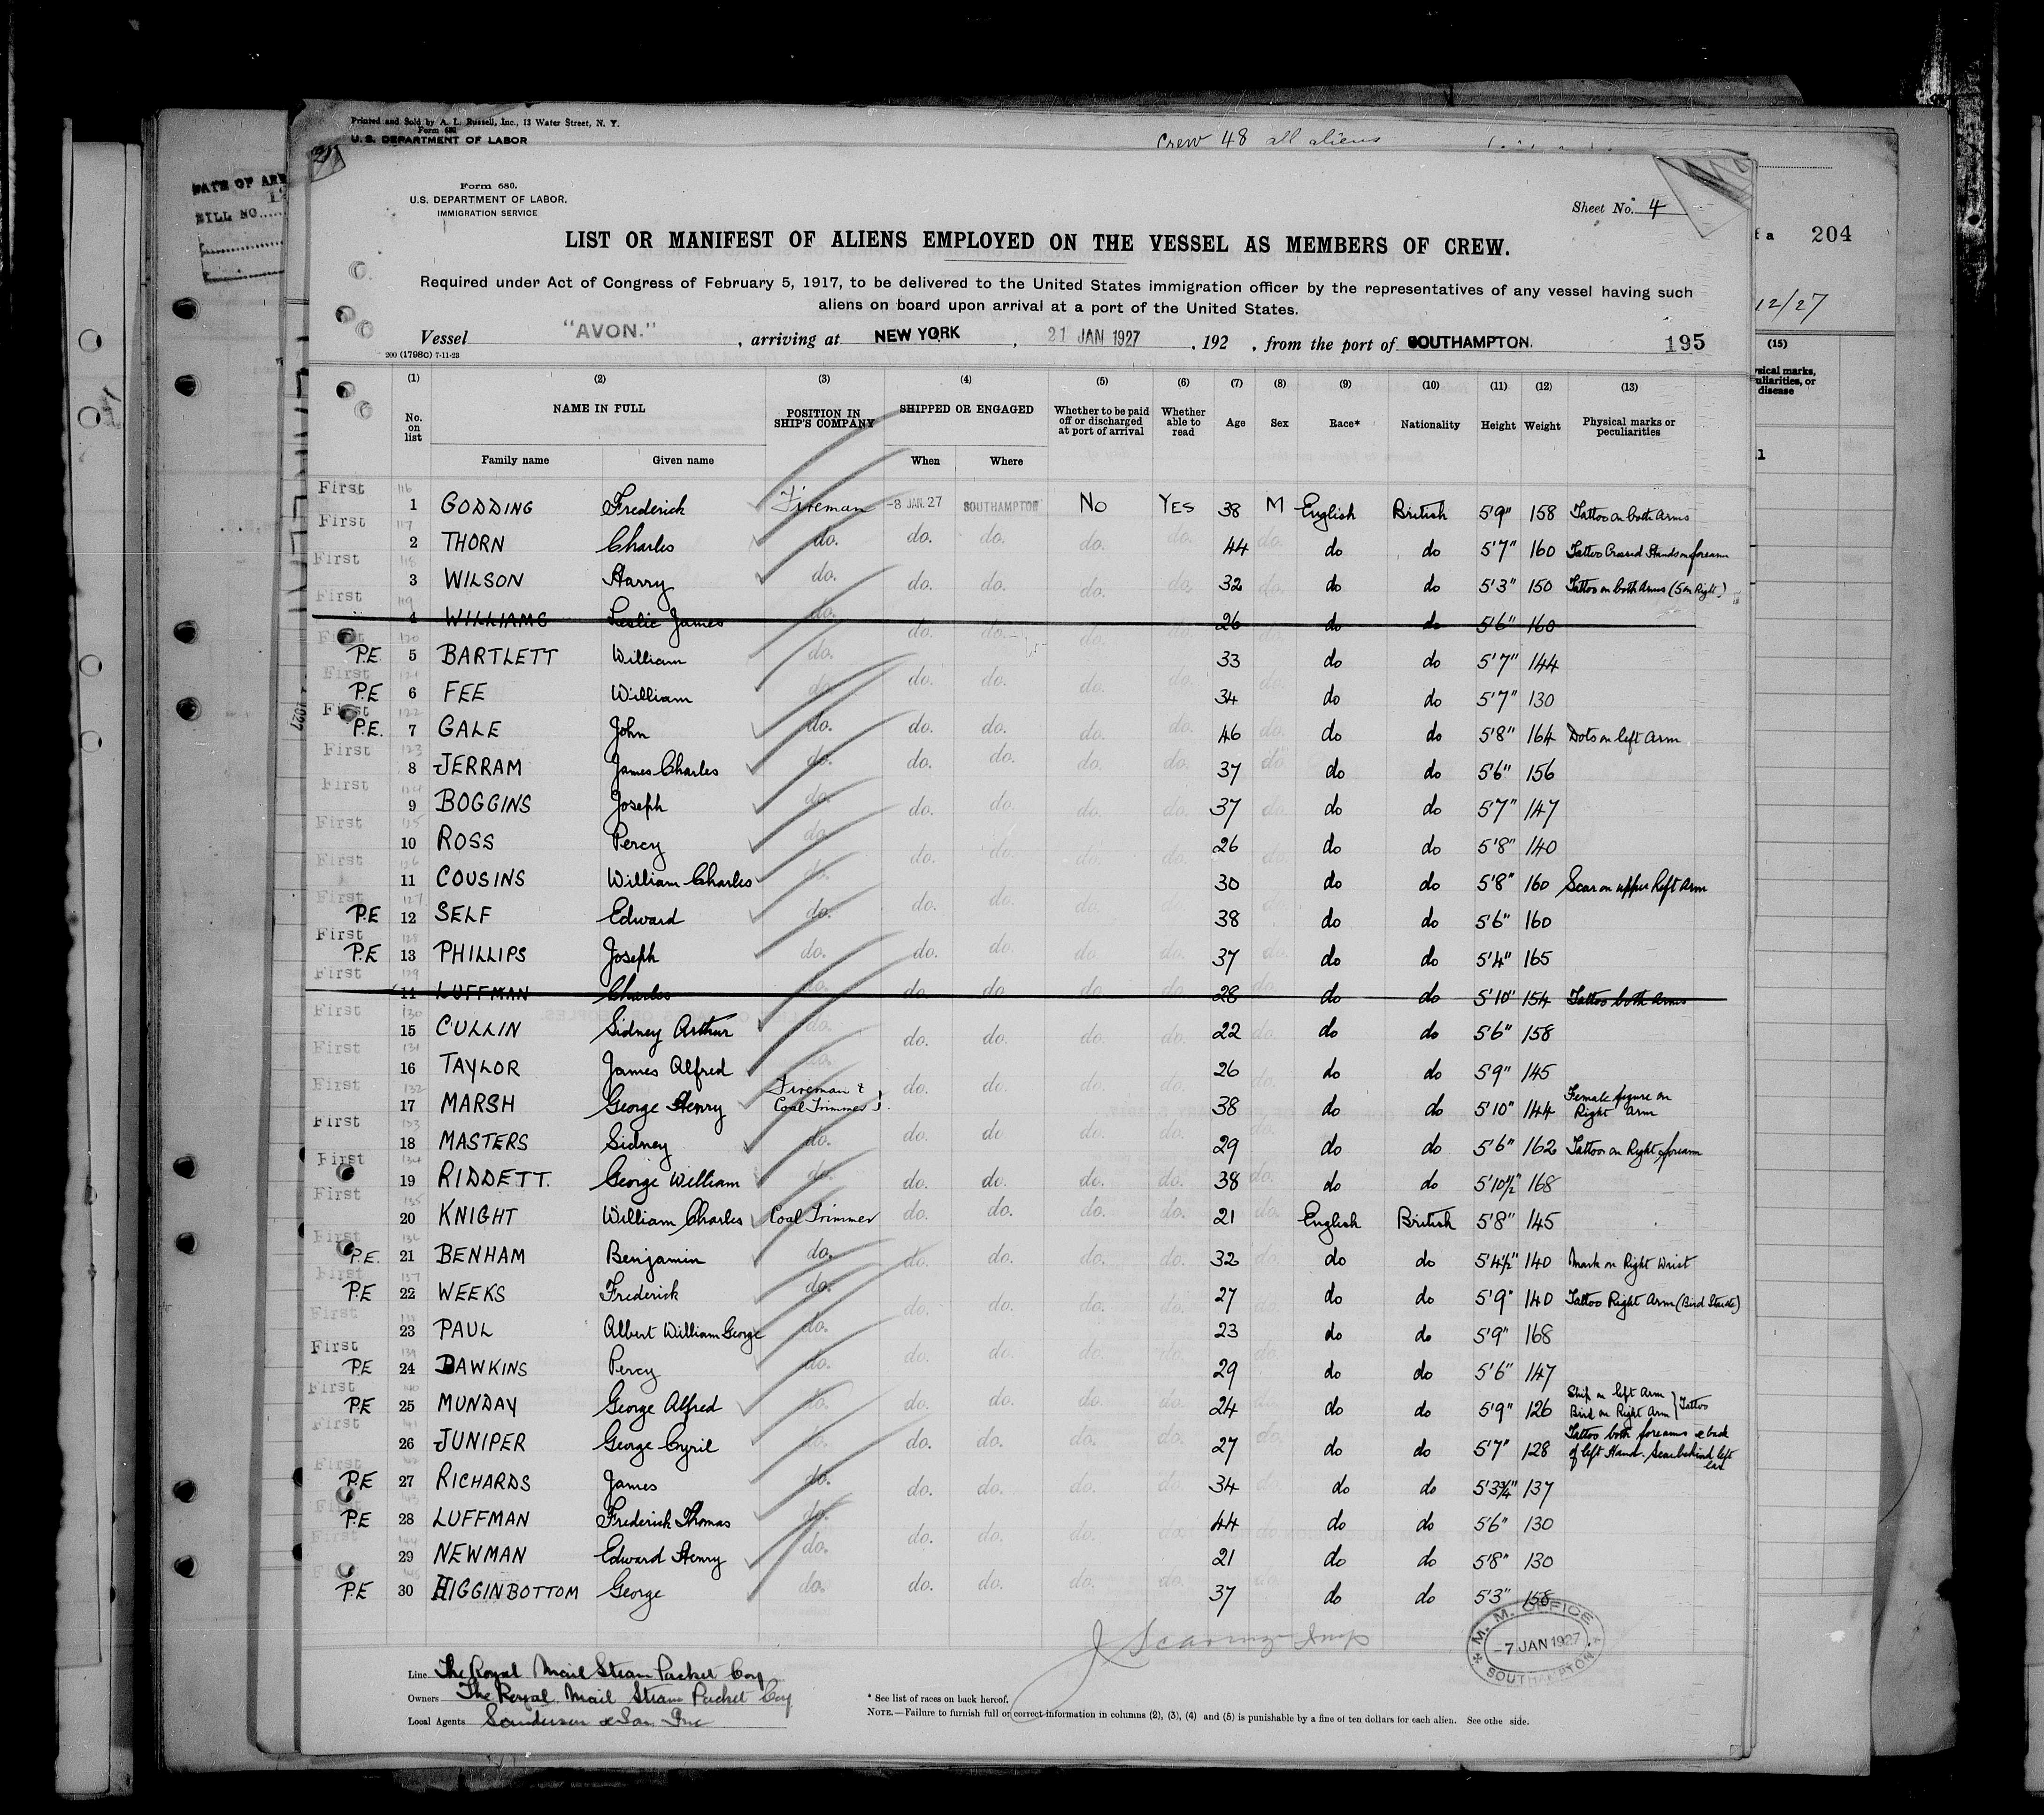 Printed and Sold by A. L. Russell, Inc., 13 Water Street, N. Y.
Form 680
U. S. DEPARTMENT OF LABOR
Crew 48 all aliens
DATE OF ARR
BILL NO
204
12/27
(15)
Form 680.
U.S. DEPARTMENT OF LABOR.
IMMIGRATION SERVICE
Sheet No. 4
LIST OR MANIFEST OF ALIENS EMPLOYED ON THE VESSEL AS MEMBERS OF CREW.
Required under Act of Congress of February 5, 1917, to be delivered to the United States immigration officer by the representatives of any vessel having such
aliens on board upon arrival at a port of the United States.
Vessel "AVON." , arriving at NEW YORK , 21 JAN 1927 , 192 , from the port of SOUTHAMPTON. 195
200 (1798C) 7-11-23
(1) (2) (3) (4) (5) (6) (7) (8) (9) (10) (11) (12) (13)
No. on list NAME IN FULL POSITION IN SHIP'S COMPANY SHIPPED OR ENGAGED Whether to be paid off or discharged at port of arrival Whether able to read Age Sex Race* Nationality Height Weight Physical marks or peculiarities
Family name Given name When Where
First 116 1 GODDING Frederick Fireman -8 JAN. 27 SOUTHAMPTON No YES 38 M English British 5'9" 158 Tattoo on both Arms
First 117 2 THORN Charles do. do. do. do. do. 44 do. do do 5'7" 160 Tattoo Crossed Hands on forearm
First 118 3 WILSON Harry do. do. do. do. do. 32 do. do do 5'3" 150 Tattoo on both Arms (5 on Right)
First 119 4 WILLIAMS Leslie James do. do. do. do. do. 26 do. do do 5'6" 160
First 120 P.E 5 BARTLETT William do. 33 do do 5'7" 144
First 121 P.E 6 FEE William do. do. do. do. do. 34 do. do do 5'7" 130
First 122 P.E. 7 GALE John do. do. do. do. do. 46 do. do do 5'8" 164 Dots on left Arm
First 123 8 JERRAM James Charles do. do. do. do. do. 37 do. do do 5'6" 156
First 124 9 BOGGINS Joseph do. do. do. do. do. 37 do. do do 5'7" 147
First 125 10 ROSS Percy do. do. do. do. do. 26 do. do do 5'8" 140
First 126 11 COUSINS William Charles do. 30 do do 5'8" 160 Scar on upper left Arm
First 127 P.E 12 SELF Edward do. do. do. do. do. 38 do. do do 5'6" 160
First 128 P.E 13 PHILLIPS Joseph do. do. do. do. do. 37 do. do do 5'4" 165
First 129 14 LUFFMAN Charles do. do. do do. do. 28 do. do do 5'10" 154 Tattoo both Arms
First 130 15 CULLIN Sidney Arthur do. do. do. do. do. 22 do. do do 5'6" 158
First 131 16 TAYLOR James Alfred do. do. do. do. do. 26 do. do do 5'9" 145
First 132 17 MARSH George Henry Fireman & Coal Trimmer 38 do do 5'10" 144 Female figure on Right Arm
First 133 18 MASTERS Sidney do. do. do do. do. 29 do. do do 5'6" 162 Tattoo on Right forearm
First 134 19 RIDDETT. George William do. do. do. do. do. 38 do. do do 5'10½" 168
First 135 20 KNIGHT William Charles Coal Trimmer do. do. do. do. 21 do. English British 5'8" 145
First 136 P.E. 21 BENHAM Benjamin do. do. do. do. do. 32 do. do do 5'4½" 140 Mark on Right Wrist
First 137 P.E 22 WEEKS Frederick do. do. do. do. do. 27 do. do do 5'9" 140 Tattoo Right Arm
First 138 23 PAUL Albert William George do. 23 do do 5'9" 168
First 139 P.E 24 DAWKINS Percy do. do. do. do. do. 29 do. do do 5'6" 147
First 140 P.E 25 MUNDAY George Alfred do. do. do. do. do. 24 do. do do 5'9" 126 Ship on left Arm Bird on Right Arm } Tattoo
First 141 26 JUNIPER George Cyril do. do. do. do. do. 27 do. do do 5'7" 128 Tattoo both forearms & back of left Hand. Scar behind left ear
First 142 P.E 27 RICHARDS James do. do. do. do. do. 34 do. do do 5'3¾" 137
First 143 P.E 28 LUFFMAN Frederick Thomas do. 44 do do 5'6" 130
First 144 29 NEWMAN Edward Henry do. do. do. do. do. 21 do. do do 5'8" 130
145 P.E 30 HIGGINBOTTOM George do. do. do. do. do. 37 do. do do 5'3" 158
M. M. OFFICE
-7 JAN 1927
SOUTHAMPTON
Line The Royal Mail Steam Packet Coy
Owners The Royal Mail Steam Packet Coy
Local Agents Sanderson & Son Inc
* See list of races on back hereof.
NOTE.—Failure to furnish full or correct information in columns (2), (3), (4) and (5) is punishable by a fine of ten dollars for each alien. See othe side.